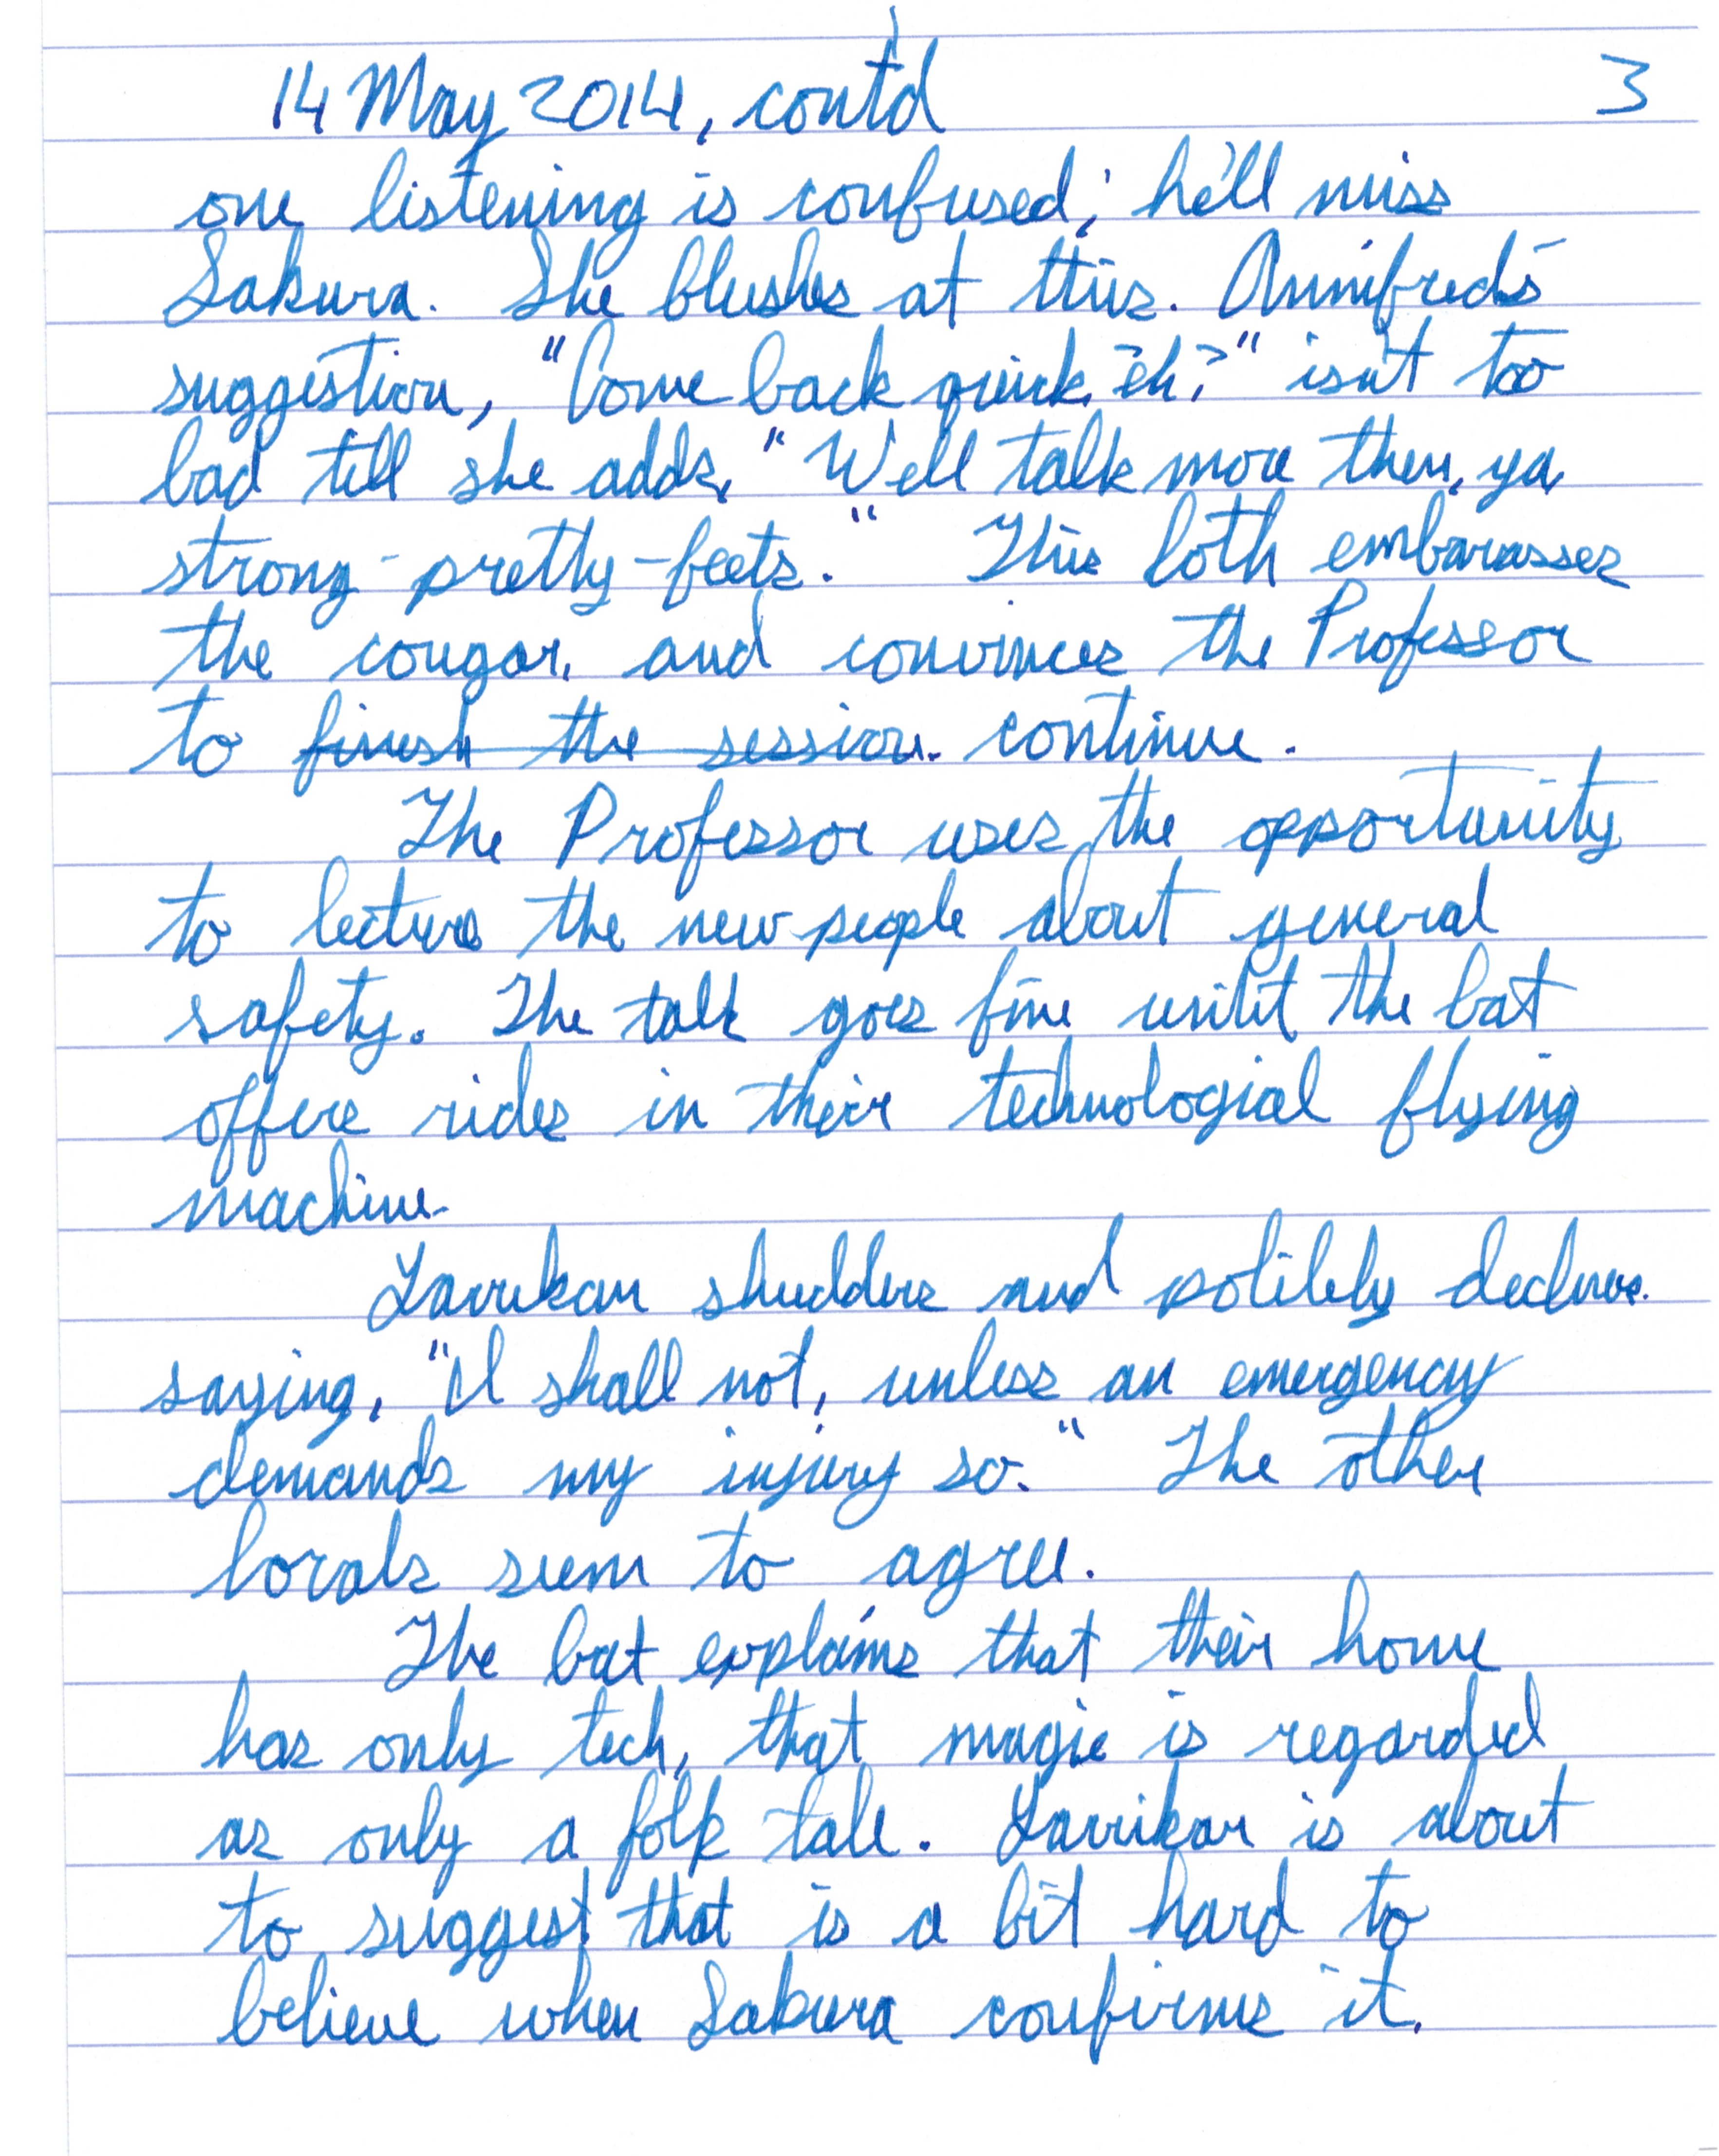 14 May 2014, cont'd 3
one listening is confused; he'll miss
Sakura. She blushes at this. Annifred's
suggestion, "Come back quick, eh?" isn't too
bad till she adds, "We'll talk more then, ya
strong-pretty-feets." This both embarasses
the cougar, and convinces the Professor
to finish the session. continue.
The Professor uses the opportunity
to lecture the new people about general
safety. The talk goes fine until the bat
offers rides in their technologial flying
machine.
Larrikan shudders and politely declines.
saying, "I shall not, unless an emergency
demands my injury so." The other
locals seem to agree.
The bat explains that their home
has only tech, that magic is regarded
as only a folk tale. Larrikan is about
to suggest that is a bit hard to
believe when Sakura confirms it.